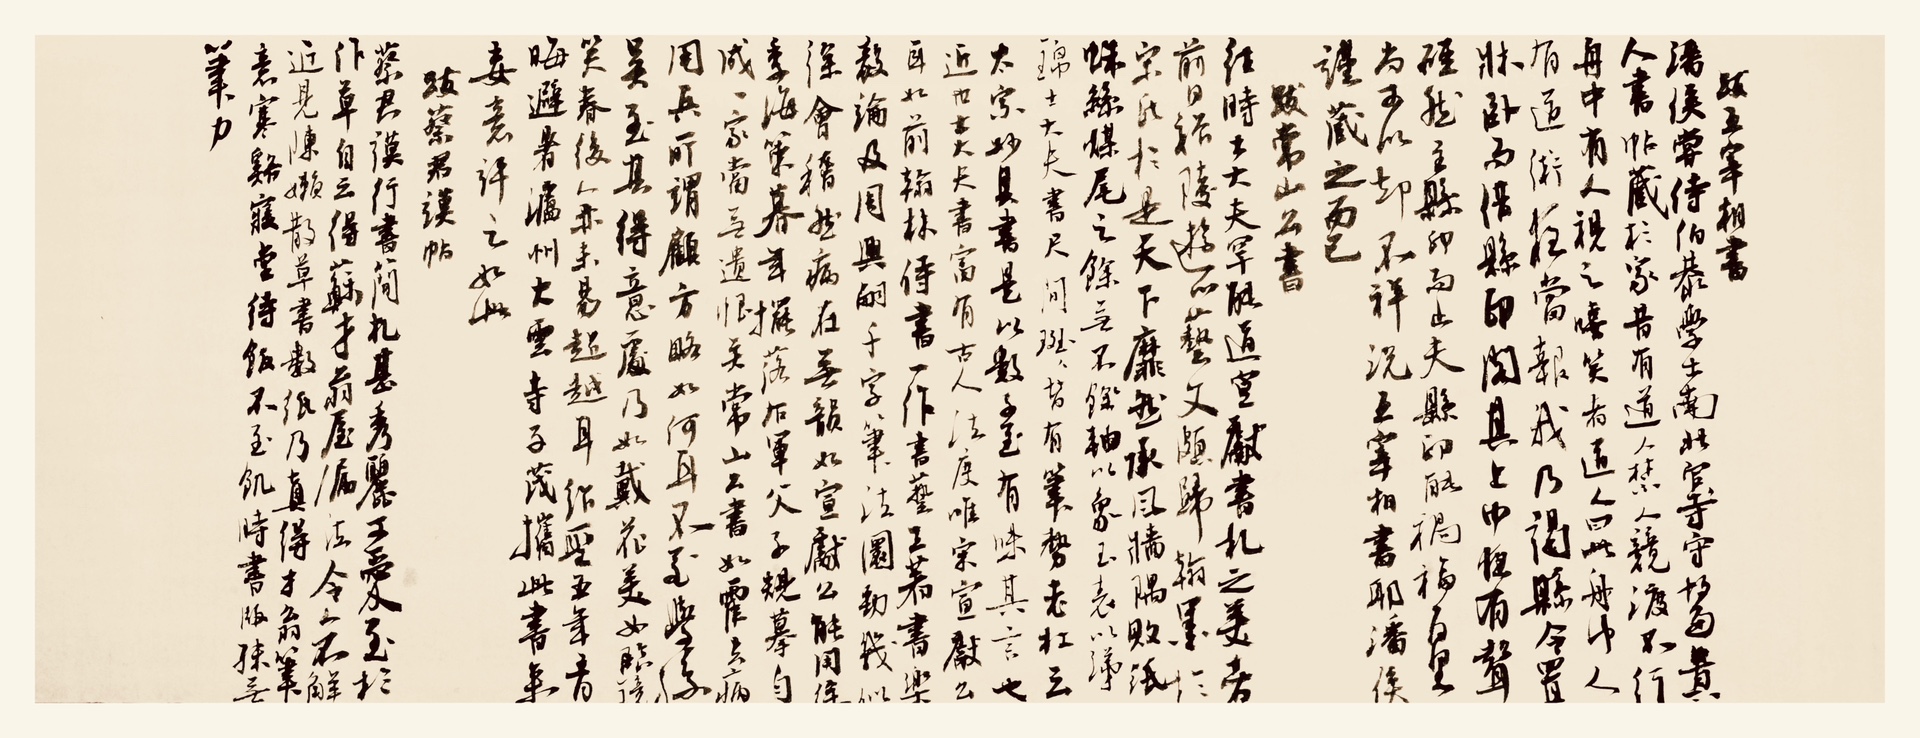 跋王宰相書
潘侯嘗侍伯恭學士南北官守皆
人書帖藏於家昔有道人禁人競渡不行
舟中有人視之嘻笑者道人四此舟中人
有道術狂當報我乃謁縣令置
牀臥而借縣印閱其上巾極有聲
硜然主縣印而出夫縣印能禍福百里
尚可以却不祥況王宰相書耶潘侯
謹藏之而已
跋常山公書
往時士大夫罕能道宣獻書札之美者
前日裕陵遊心藝文頗歸翰墨於
宋氏於是天下靡然承風牆隅敗紙
蛛絲煤尾之餘無不錦軸以象玉表以
錦士大夫書尺間斑斑皆有筆勢老杜云
太宗妙其書是以數子至有味其言也
近世士大夫書富有古人法度唯宋宣獻公
耳如前翰林侍書王著書樂
毅論及周興嗣千字筆法圓勁幾似
徐會稽然病在無韻如宣獻公能用徐
季海策暮年擺落右軍父子規摹自
成一家當無遺恨矣常山公書如霍去病
用兵所謂顧方略如何耳不至學孫
吳至其得意處乃如戴花美女臨鏡
笑春後人亦未易超越耳紹聖五年五月
晦避暑瀘州大雲寺子茂攜此書來
妄意評之如此
跋蔡君謨帖
蔡君謨行書簡札甚秀麗可愛至於
作草自云得蘇才翁屋漏法令人不解
近見陳懶散草書數紙乃真得才翁筆
意寒谿寢堂待飯不至飢時書版殊無
筆力